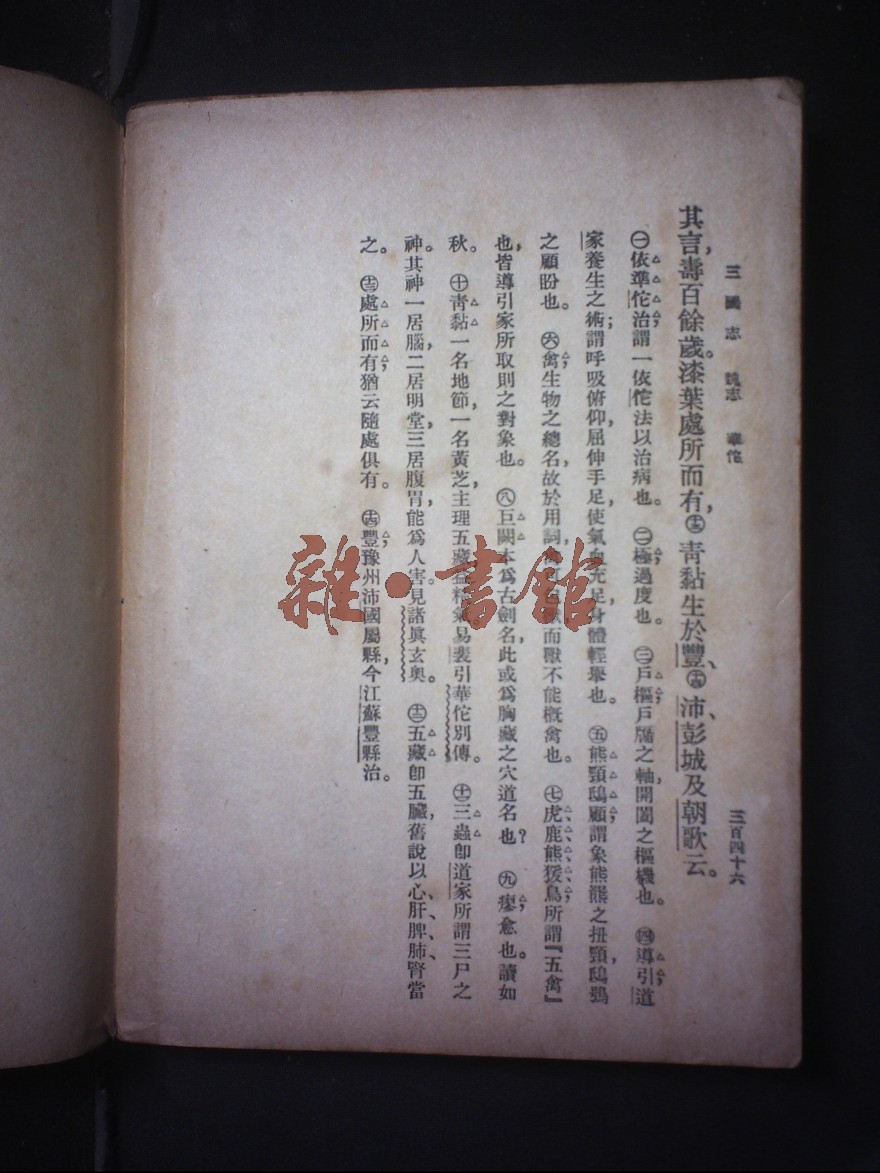 三國志 魏志 華佗 三百四十六
其言，壽百餘歲。漆葉處所而有，㊂靑黏生於豐、㊃沛、彭城及朝歌云。
㊀依準佗治；謂一依佗法以治病也。㊁極；過度也。㊂戶樞；戶牖之軸，開闔之樞機也。㊃導引；道
家養生之術；謂呼吸俯仰，屈伸手足，使氣血充足，身體輕舉也。㊄熊頸鴟顧；謂象熊羆之扭頸，鴟鴞
之顧盼也。㊅禽；生物之總名，故於用詞，禽可 而獸不能概禽也。㊆虎、鹿、熊、猨、鳥；所謂『五禽』
也，皆導引家所取則之對象也。㊇巨闕；本爲古劍名，此或爲胸藏之穴道名也？㊈瘳；愈也。讀如
秋。㊉靑黏；一名地節，一名黃芝，主理五藏，益精氣。易裴引華佗別傳。（十一）三蟲；卽道家所謂三尸之
神。其神一居腦，二居明堂，三居腹胃，能爲人害。見諸眞玄奧。（十二）五藏；卽五臟，舊說以心、肝、脾、肺、腎當
之。（十三）處所而有；猶云隨處俱有。（十四）豐；豫州沛國屬縣，今江蘇豐縣治。
雜·書館